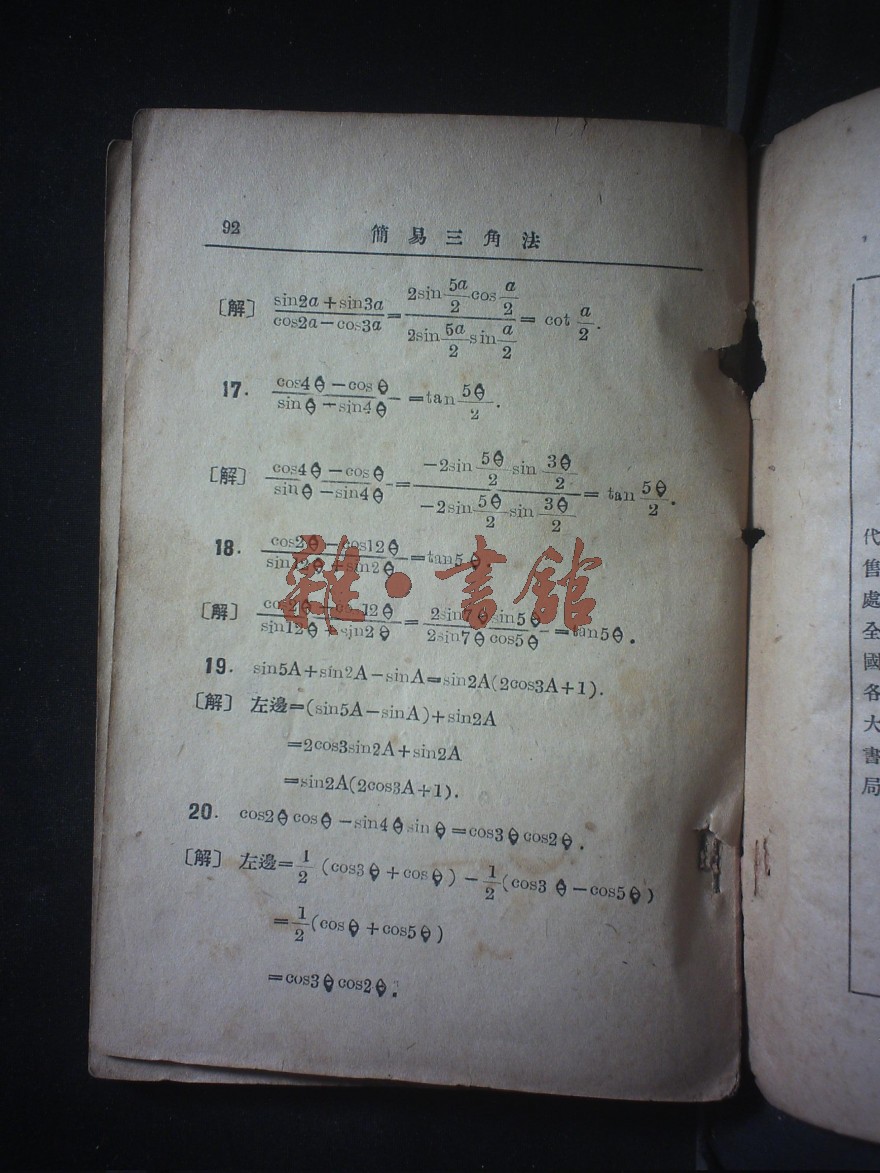 92
簡易三角法
〔解〕 (sin2a+sin3a)/(cos2a−cos3a)=(2sin 5a/2 cos a/2)/(2sin 5a/2 sin a/2)= cot a/2.
17. (cos4θ−cosθ)/(sinθ−sin4θ)=tan 5θ/2.
〔解〕 (cos4θ−cosθ)/(sinθ−sin4θ)=(−2sin 5θ/2 sin 3θ/2)/(−2sin 5θ/2 sin 3θ/2)= tan 5θ/2.
18. (cos2θ−cos12θ)/(sin12θ+sin2θ)=tan5θ.
〔解〕 (cos2θ−cos12θ)/(sin12θ+sin2θ)=(2sin7θsin5θ)/(2sin7θcos5θ)=tan5θ.
19. sin5A+sin2A−sinA=sin2A(2cos3A+1).
〔解〕 左邊=(sin5A−sinA)+sin2A
=2cos3sin2A+sin2A
=sin2A(2cos3A+1).
20. cos2θcosθ−sin4θsinθ=cos3θcos2θ.
〔解〕 左邊=1/2(cos3θ+cosθ)−1/2(cos3θ−cos5θ)
=1/2(cosθ+cos5θ)
=cos3θcos2θ.
雜·書館
代售處全國各大書局